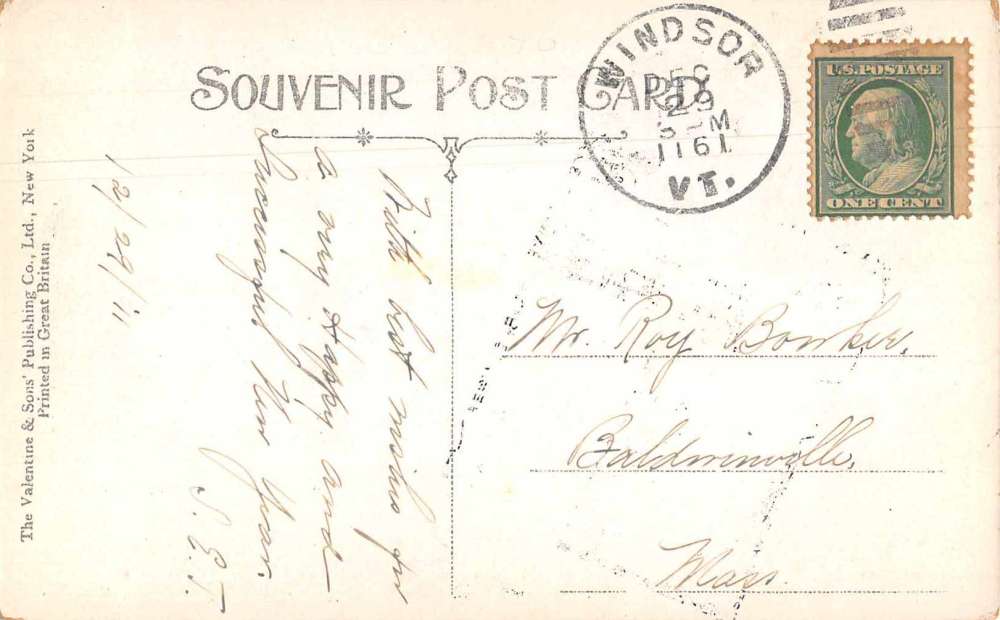 SOUVENIR POST CARD
WINDSOR
DEC
29
M
1911
VT.
U.S. POSTAGE
ONE CENT
The Valentine & Sons' Publishing Co., Ltd., New York
Printed in Great Britain
12/29/11
With best wishes for
a very Happy and
Successful New Year.
S. E. T
Mr. Roy Bowker,
Baldwinville,
Mass.